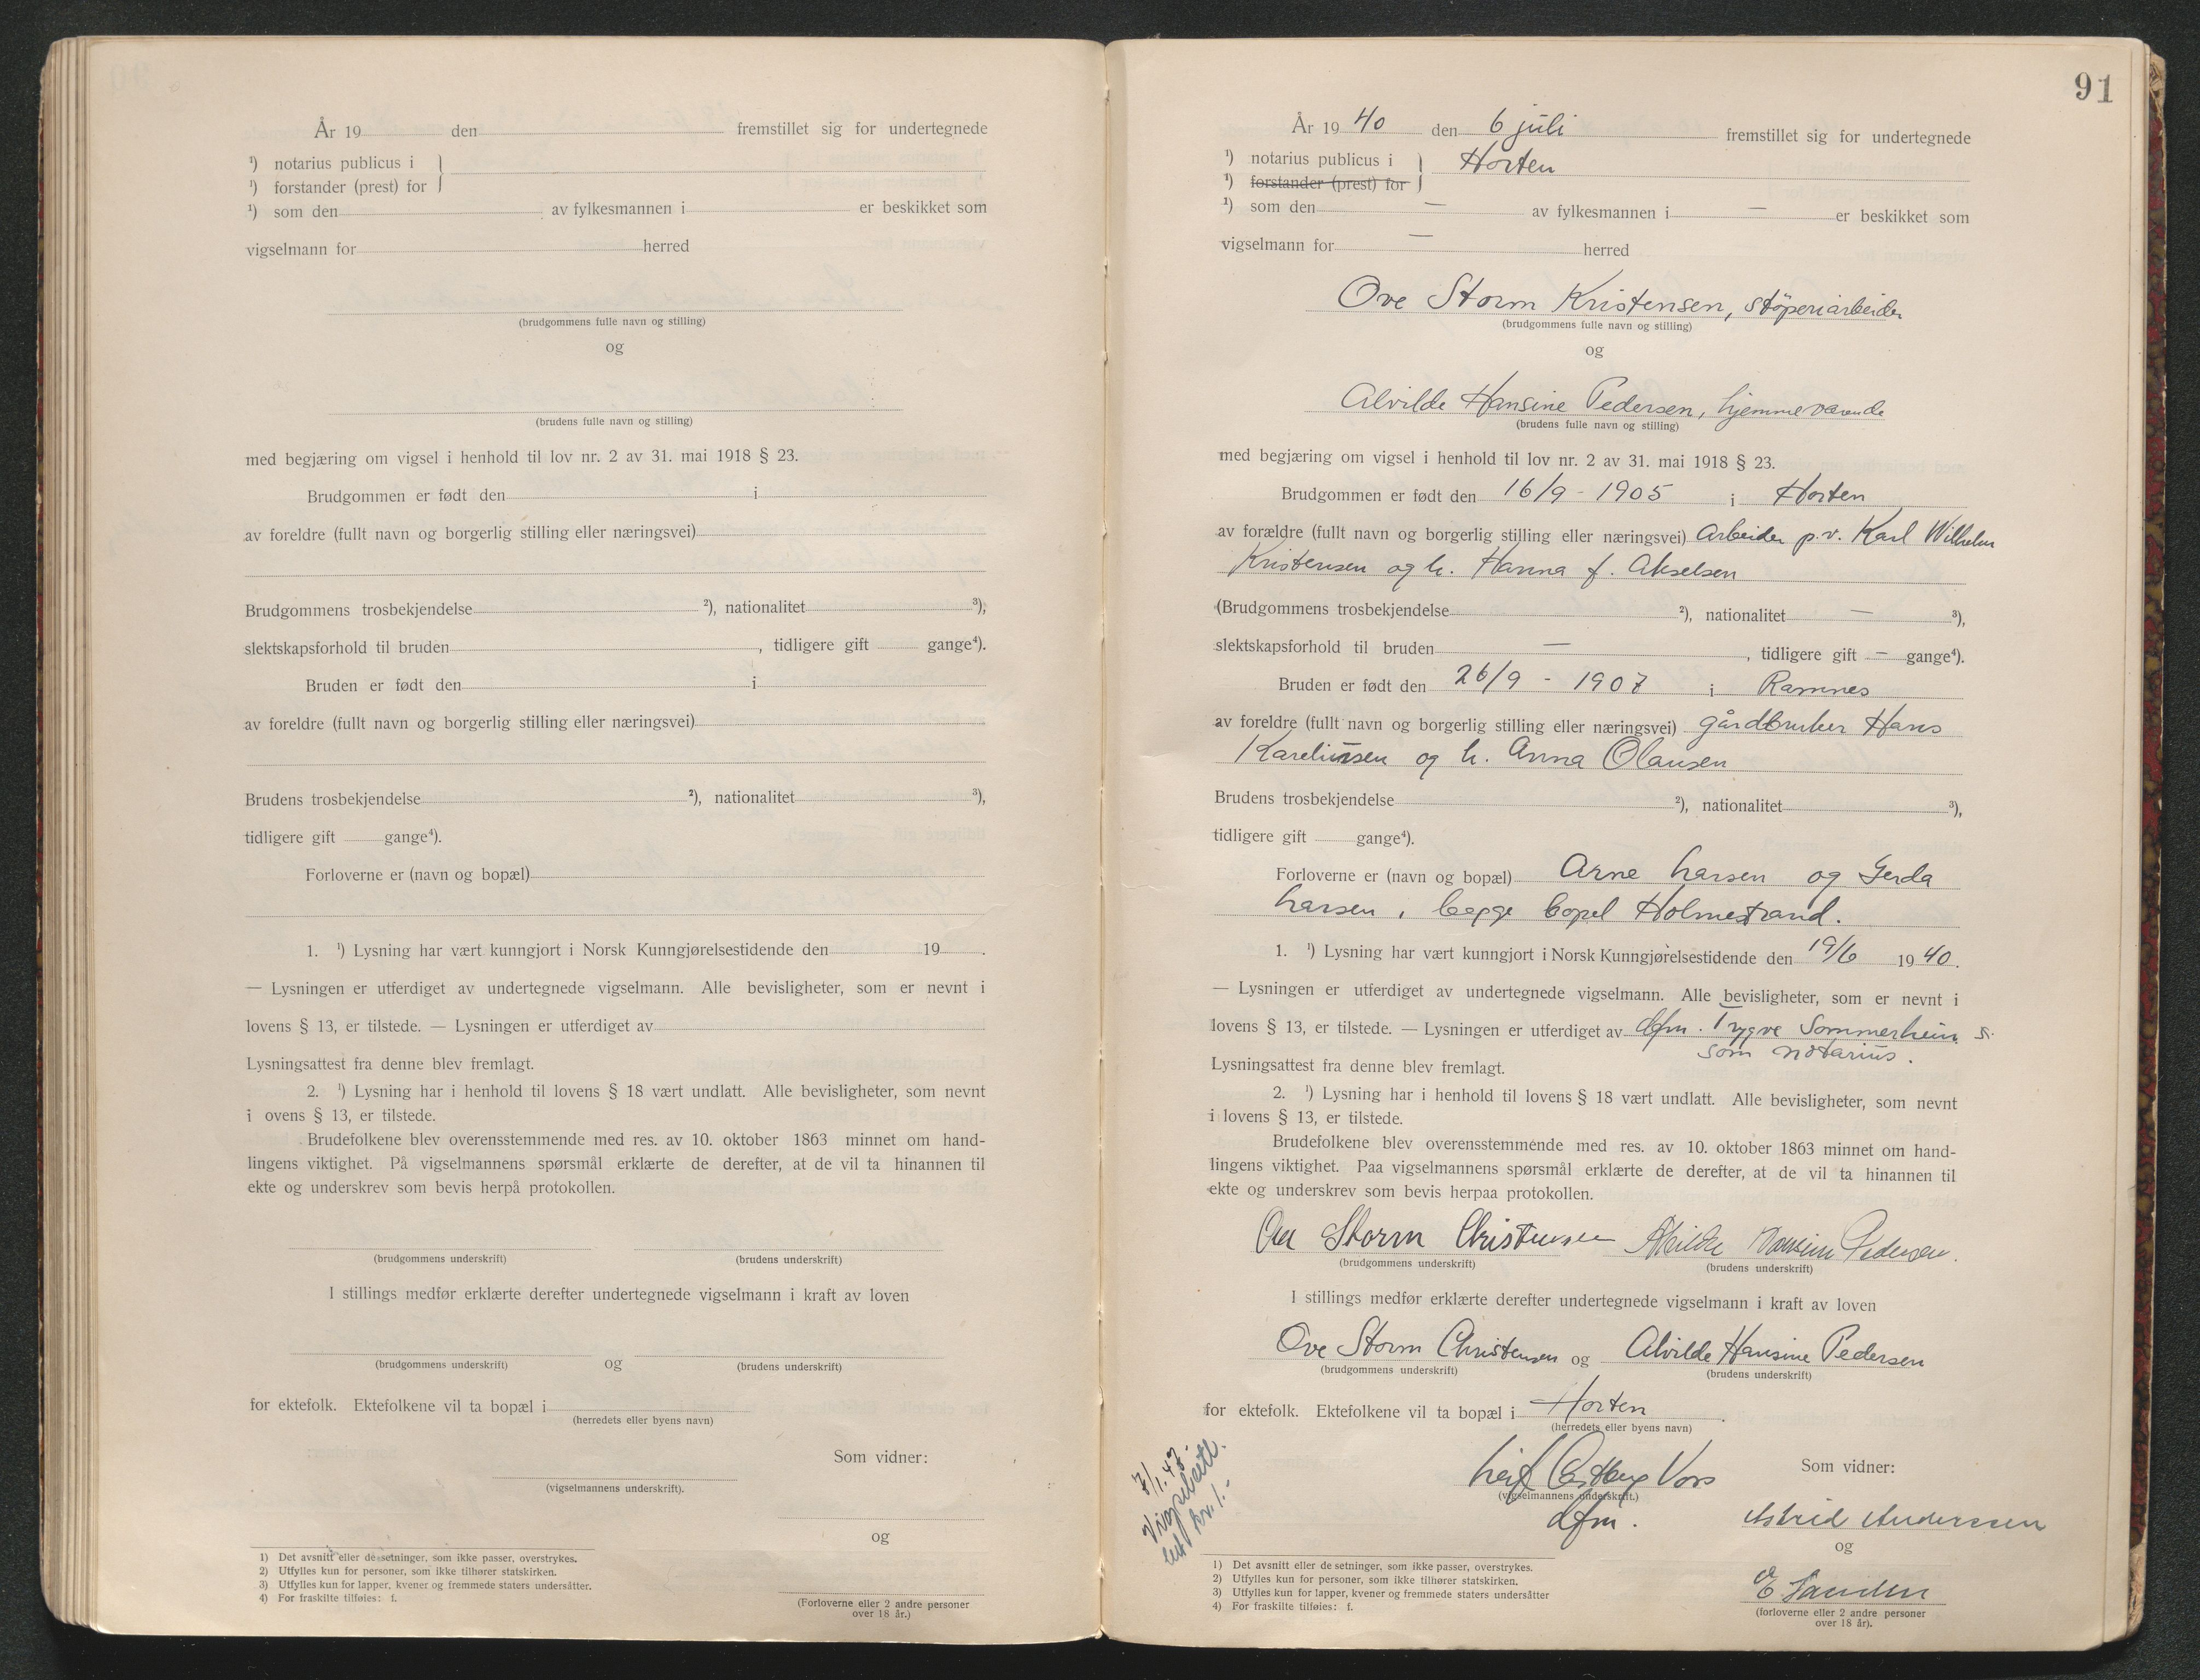 År 19 den fremstillet sig for undertegnede
¹) notarius publicus i }
¹) forstander (prest) for }
¹) som den av fylkesmannen i er beskikket som
vigselmann for herred
(brudgommens fulle navn og stilling)
og
(brudens fulle navn og stilling)
med begjæring om vigsel i henhold til lov nr. 2 av 31. mai 1918 § 23.
Brudgommen er født den i
av foreldre (fullt navn og borgerlig stilling eller næringsvei)
Brudgommens trosbekjendelse ²), nationalitet ³),
slektskapsforhold til bruden , tidligere gift gange⁴).
Bruden er født den i
av foreldre (fullt navn og borgerlig stilling eller næringsvei)
Brudens trosbekjendelse ²), nationalitet ³),
tidligere gift gange⁴).
Forloverne er (navn og bopæl)
1. ¹) Lysning har vært kunngjort i Norsk Kunngjørelsestidende den 19 .
— Lysningen er utferdiget av undertegnede vigselmann. Alle bevisligheter, som er nevnt i
lovens § 13, er tilstede. — Lysningen er utferdiget av
Lysningsattest fra denne blev fremlagt.
2. ¹) Lysning har i henhold til lovens § 18 vært undlatt. Alle bevisligheter, som nevnt
i ovens § 13, er tilstede.
Brudefolkene blev overensstemmende med res. av 10. oktober 1863 minnet om hand-
lingens viktighet. På vigselmannens spørsmål erklærte de derefter, at de vil ta hinannen til
ekte og underskrev som bevis herpå protokollen.
(brudgommens underskrift) (brudens underskrift)
I stillings medfør erklærte derefter undertegnede vigselmann i kraft av loven
og
(brudgommens underskrift) (brudens underskrift)
for ektefolk. Ektefolkene vil ta bopæl i
(herredets eller byens navn)
Som vidner:
(vigselmannens underskrift).
og
1) Det avsnitt eller de setninger, som ikke passer, overstrykes.
2) Utfylles kun for personer, som ikke tilhører statskirken.
3) Utfylles kun for lapper, kvener og fremmede staters undersåtter.
4) For fraskilte tilføies: f.
(Forloverne eller 2 andre personer
over 18 år.)
91
År 19 40 den 6 juli fremstillet sig for undertegnede
¹) notarius publicus i } Horten
¹) forstander (prest) for }
¹) som den — av fylkesmannen i — er beskikket som
vigselmann for — herred
Ove Storm Kristensen, støperiarbeider
(brudgommens fulle navn og stilling)
og
Alvilde Hansine Pedersen, hjemmeværende
(brudens fulle navn og stilling)
med begjæring om vigsel i henhold til lov nr. 2 av 31. mai 1918 § 23.
Brudgommen er født den 16/9 - 1905 i Horten
av forældre (fullt navn og borgerlig stilling eller næringsvei) Arbeider p.v. Karl Wilhelm
Kristensen og h. Hanna f. Akselsen
(Brudgommens trosbekjendelse ²), nationalitet — ³),
slektskapsforhold til bruden — , tidligere gift — gange⁴).
Bruden er født den 26/9 - 1907 i Ramnes
av foreldre (fullt navn og borgerlig stilling eller næringsvei) gårdbruker Hans
Kareliusen og h. Anna Olausen
Brudens trosbekjendelse ²), nationalitet ³),
tidligere gift gange⁴).
Forloverne er (navn og bopæl) Arne Larsen og Gerda
Larsen, begge bopel Holmestrand.
1. ¹) Lysning har vært kunngjort i Norsk Kunngjørelsestidende den 19/6 19 40.
— Lysningen er utferdiget av undertegnede vigselmann. Alle bevisligheter, som er nevnt i
lovens § 13, er tilstede. — Lysningen er utferdiget av dfm. Trygve Sommerheim
som notarius.
Lysningsattest fra denne blev fremlagt.
2. ¹) Lysning har i henhold til lovens § 18 vært undlatt. Alle bevisligheter, som nevnt
i lovens § 13, er tilstede.
Brudefolkene blev overensstemmende med res. av 10. oktober 1863 minnet om hand-
lingens viktighet. Paa vigselmannens spørsmål erklærte de derefter, at de vil ta hinannen til
ekte og underskrev som bevis herpaa protokollen.
Ove Storm Christensen Alvilde Hansine Pedersen.
(brudgommens underskrift) (brudens underskrift)
I stillings medfør erklærte derefter undertegnede vigselmann i kraft av loven
Ove Storm Christensen og Alvilde Hansine Pedersen
(brudgommens underskrift) (brudens underskrift)
for ektefolk. Ektefolkene vil ta bopæl i Horten.
(herredets eller byens navn)
7/1.47.
Vigselsatt.
kr. 1.-
Leif Castberg
Som vidner:
(vigselmannens underskrift.)
dfm.
Astrid Anderssen
og
1) Det avsnitt eller de setninger, som ikke passer, overstrykes.
2) Utfylles kun for personer, som ikke tilhører statskirken.
3) Utfylles kun for lapper, kvener og fremmede staters undersåtter
4) For fraskilte tilføies: f.
(forloverne eller 2 andre personer
over 18 år).